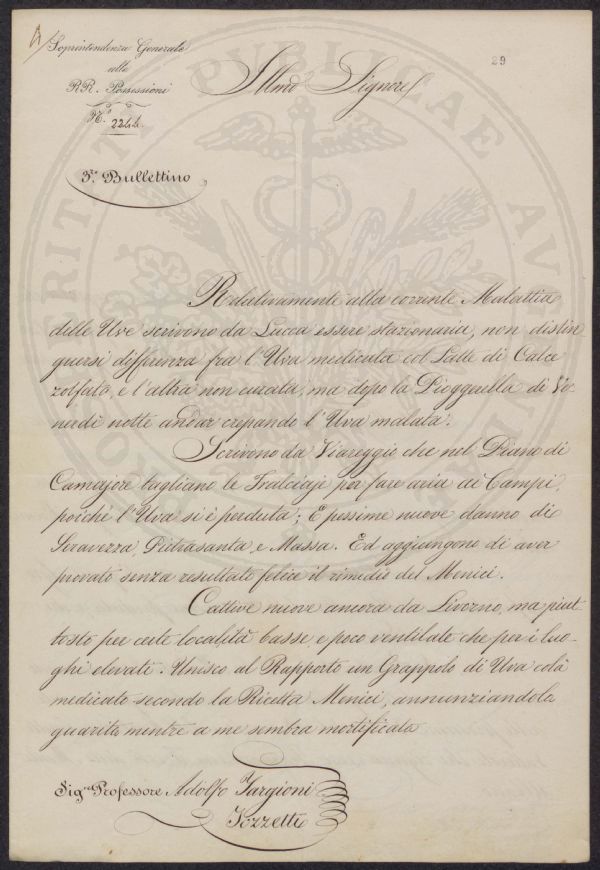 Soprintendenza Generale
alle
RR. Possessioni
N.° 2244.
29
Illmo Signore
3.zo Bullettino
Relativamente alla corrente Malattia
delle Uve scrivono da Lucca essere stazionaria, non distin-
guersi differenza fra l'Uva medicata col Latte di Calce
zolfato, e l'altra non curata, ma dopo la Pioggerella di Ve-
nerdì notte andar crepando l'Uva malata.
Scrivono da Viareggio che nel Piano di
Camajore tagliano le Tralciaje per fare aria ai Campi,
poichè l'Uva si è perduta; E pessime nuove danno di
Seravezza, Pietrasanta, e Massa. Ed aggiungono di aver
provato senza resultato felice il rimedio del Menici.
Cattive nuove ancora da Livorno, ma piut-
tosto per certe località basse, e poco ventilate che per i luo-
ghi elevati. Unisco al Rapporto un Grappolo di Uva colà
medicato secondo la Ricetta Menici, annunziandola
guarita, mentre a me sembra mortificata
Sig.re Professore Adolfo Targioni
Tozzetti